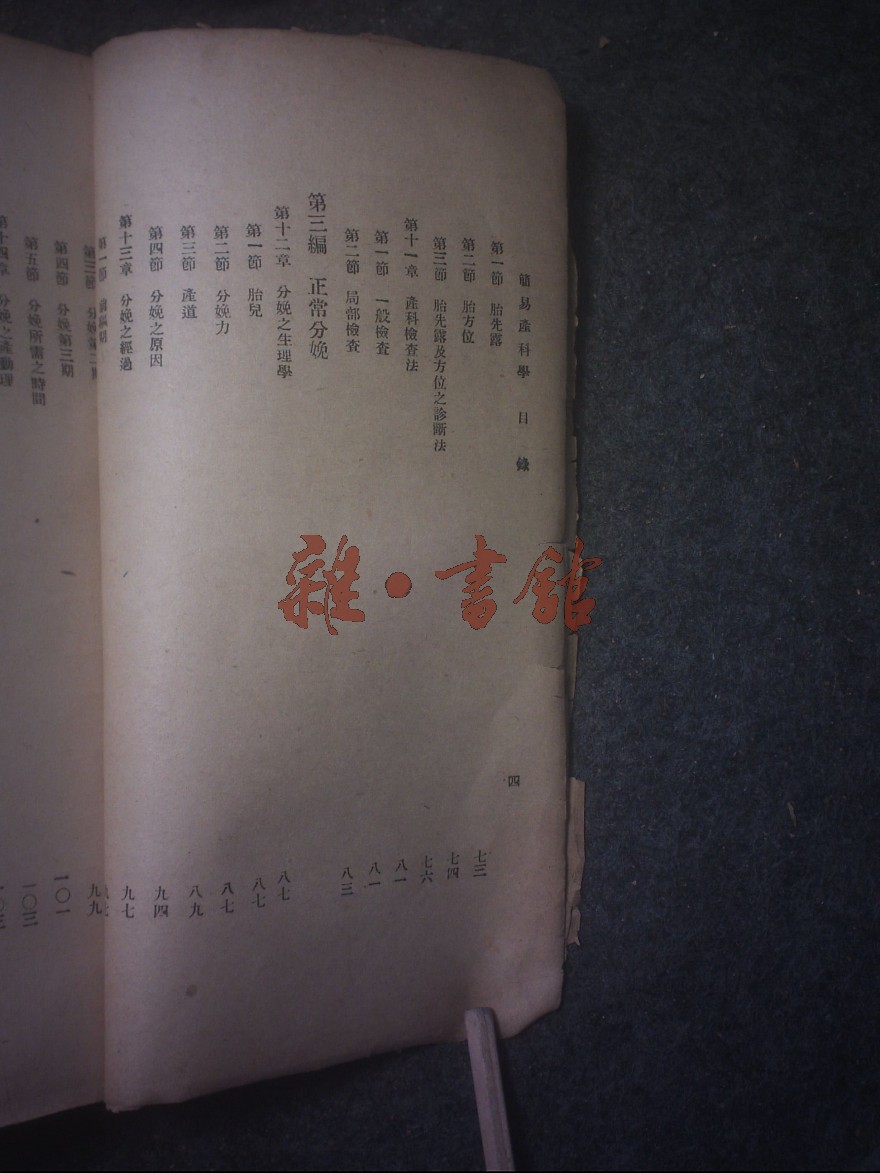 簡易產科學 目錄 四
第一節 胎先露 七三
第二節 胎方位 七四
第三節 胎先露及方位之診斷法 七六
第十一章 產科檢查法 八一
第一節 一般檢查 八一
第二節 局部檢查 八三
第三編 正常分娩
第十二章 分娩之生理學 八七
第一節 胎兒 八七
第二節 分娩力 八七
第三節 產道 八九
第四節 分娩之原因 九四
第十三章 分娩之經過 九七
第一節
分娩第 九九
第四節 分娩第三期 一〇一
第五節 分娩所需之時間 一〇三
第十四章 分娩之產 一〇三
雜·書館